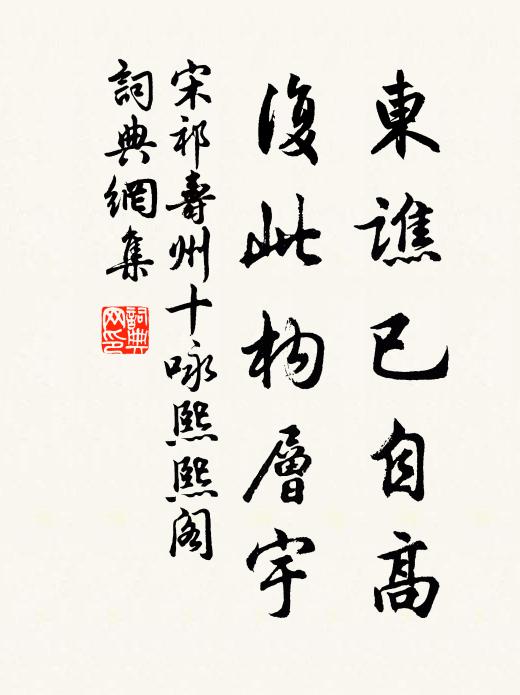 東譙已自高
復此构層宇
宋祁壽州十咏熙熙阁
詞典網集
詞典网印